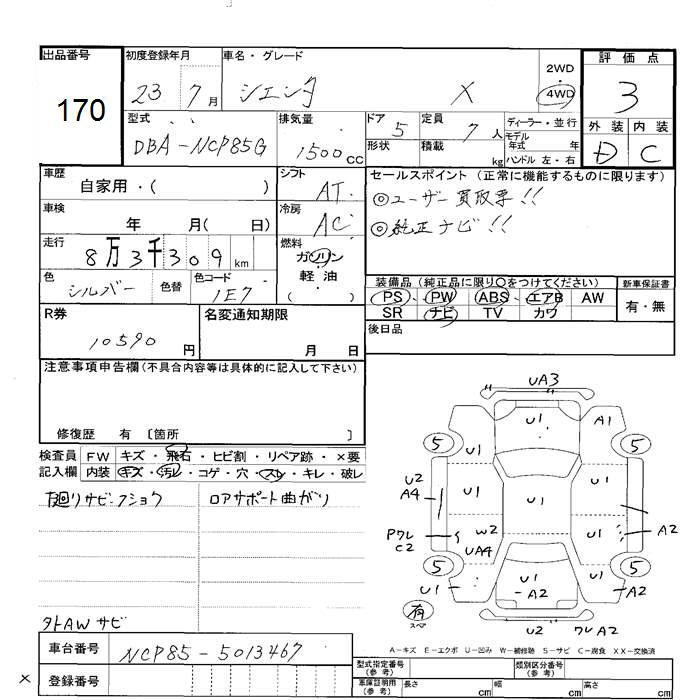 出品番号 初度登録年月 車名・グレード 評価点
170 23年 7月 シエンタ X 2WD・4WD 3
型式 排気量 ドア 定員 ディーラー・並行 外装 内装
DBA-NCP85G 1500CC 5 7人 モデル年式 年 D C
形状 積載 kg ハンドル 左・右
車歴 シフト セールスポイント (正常に機能するものに限ります)
自家用・( ) AT ◎ユーザー買取票!!
車検 冷房 ◎純正ナビ!!
年 月( 日) AC
走行 燃料
8万3千309km ガソリン
色 色替 色コード 軽油 装備品 (純正品に限り○をつけてください) 新車保証書
シルバー 1E7 ( ) PS・PW・ABS・エアB AW 有・無
R券 名変通知期限 SR ナビ TV カワ
10590円 月 日 後日品
注意事項申告欄(不具合内容等は具体的に記入して下さい)
修復歴 有 〔箇所 〕
検査員 FW キズ・飛石・ヒビ割・リペア跡・×要
記入欄 内装 キズ・汚レ・コゲ・穴・スレ・キレ・破レ
下廻リサビ・フショク ロアサポート曲ガリ
UA3
U1 A1
5 5
U1 U1
U2
A4 U1 U1 U1
Pワレ
C2 W2 U1 A2
UA4
5 5
U1 U1 U1 A2
A2
有
スペア U2 ワレA2
外AWサビ
A-キズ E-エクボ U-凹み W-補修跡 S-サビ C-腐食 XX-交換済
車台番号 NCP85-5013467
型式指定番号(参考) 類別区分番号(参考)
× 登録番号
車庫証明用(参考) 長さ cm 幅 cm 高さ cm